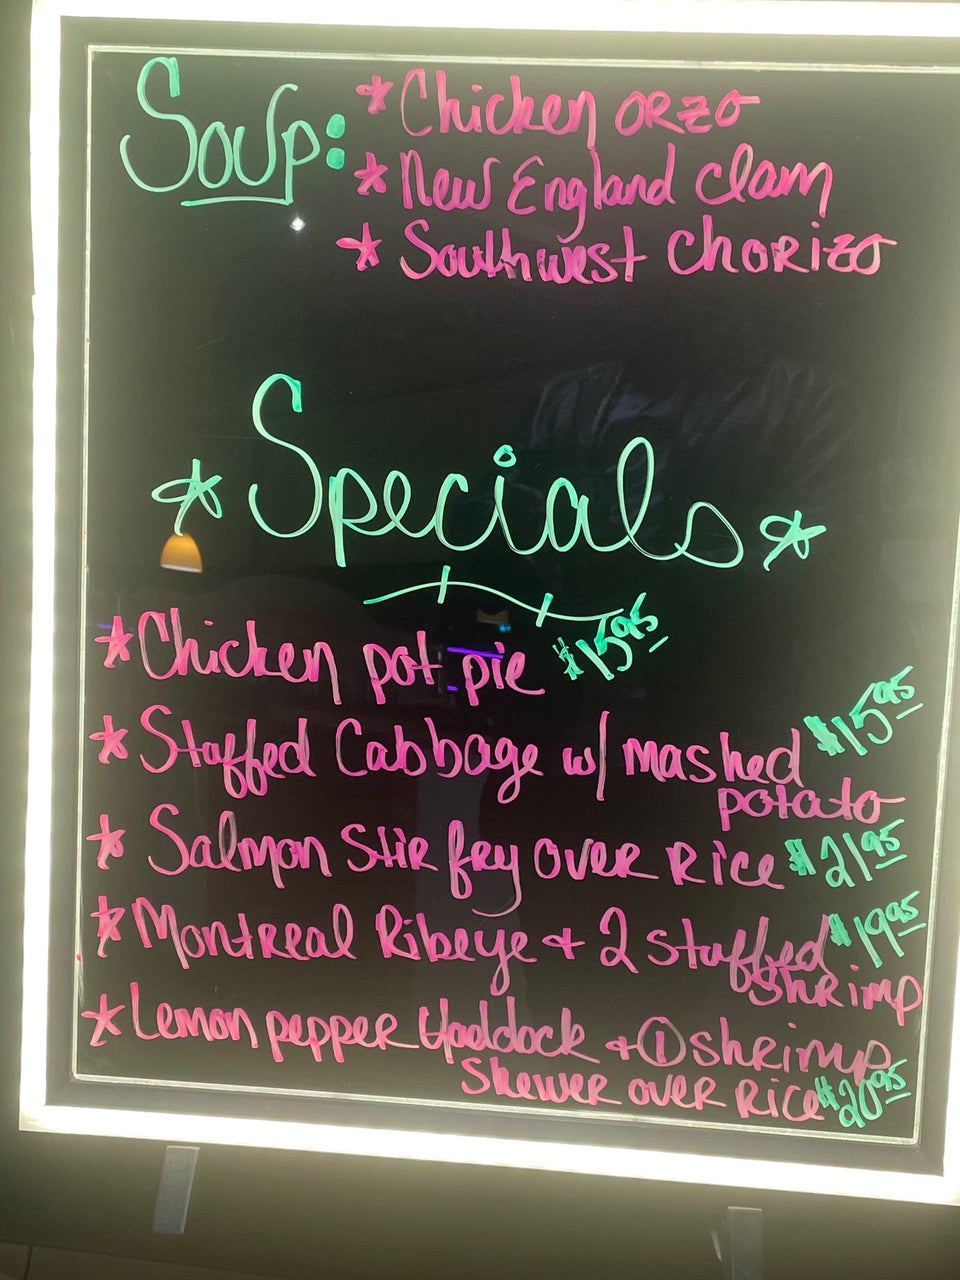 Soup: * Chicken ORZO
* New England Clam
* Southwest Chorizo
* Specials *
* Chicken pot pie $15.95
* Stuffed Cabbage w/ mashed $15.95
potato
* Salmon Stir fry over Rice $21.95
* Montreal Ribeye + 2 stuffed $19.95
shrimp
* Lemon pepper Haddock + ① shrimp
skewer over Rice $20.95